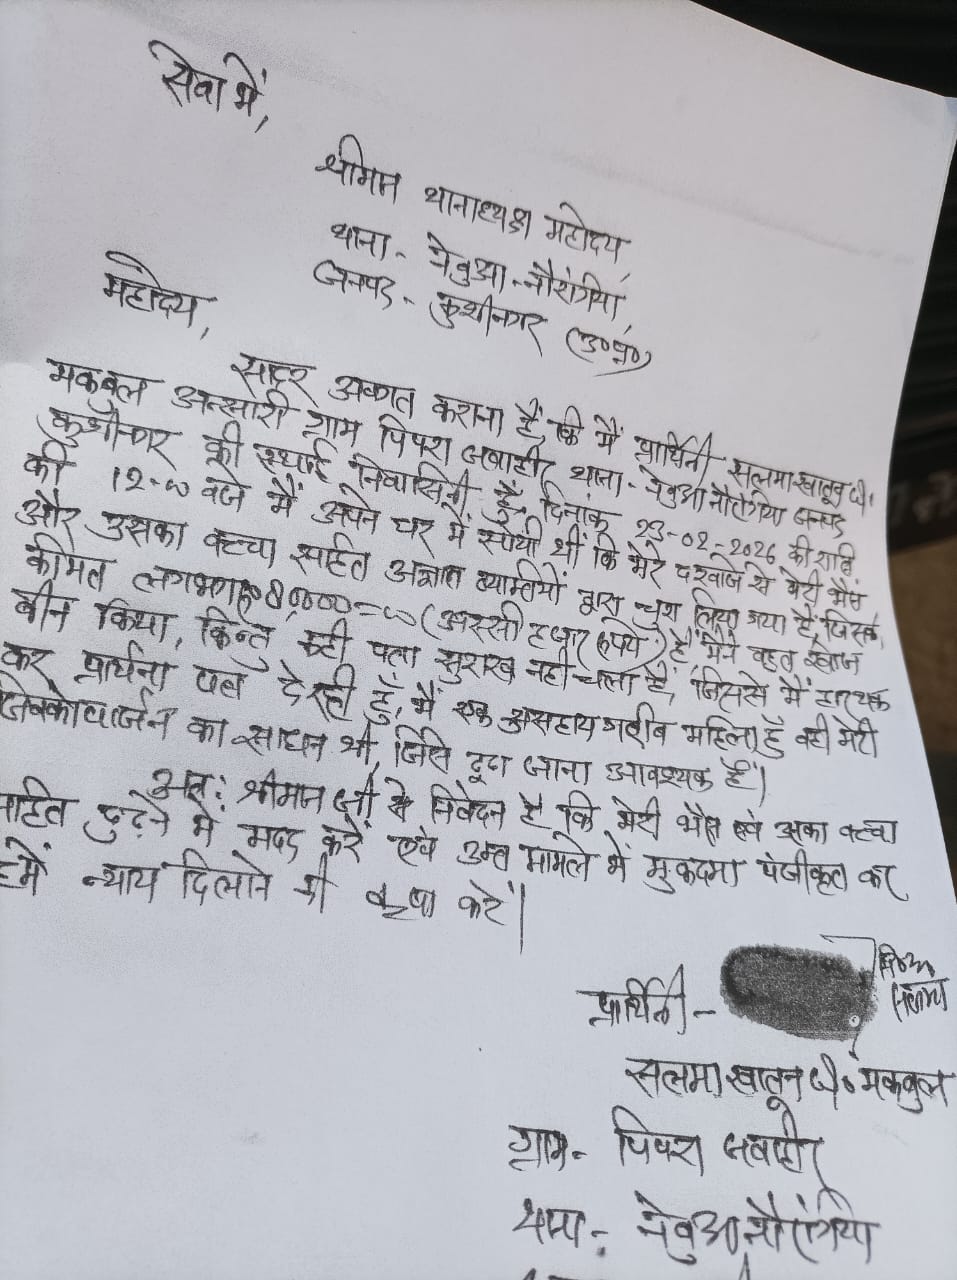 सेवा में,
श्रीमान थानाध्यक्ष महोदय,
थाना - नेबुआ - नौरंगिया,
जनपद - कुशीनगर (उ०प्र०)
महोदय,
सादर अवगत कराना है, कि मैं प्रार्थिनी सलमा खातून
मकबुल अन्सारी ग्राम पिपरा जवाहीर थाना - नेबुआ नौरंगिया जनपद
कुशीनगर की स्थाई निवासिनी हूँ, दिनांक 23-02-2026 की रात्रि
को 12-00 बजे मैं अपने घर में सोयी थी कि मेरे दरवाजे से मेरी भैंस
और उसका बच्चा सहित अज्ञात व्यक्तियों द्वारा चुरा लिया गया है, जिसकी
कीमत लगभग 80,000=00 (अस्सी हजार रूपये) है, मैंने बहुत खोज
बीन किया, किन्तु कही पता सुराख नही चला है, जिससे मैं
कर प्रार्थना पत्र दे रही हूँ, मैं एक असहाय गरीब महिला हूँ वही मेरी
का साधन थी, जिसे ढूढा जाना आवश्यक है।
अतः श्रीमान जी से निवेदन है कि मेरी भैंस एवं उसका बच्चा
सहित ढुढ़ने में मदद करें एवं उक्त मामले में मुकदमा पंजीकृत कर
हमें न्याय दिलाने की कृपा करें।
प्रार्थिनी -
सलमा खातून मकबुल
ग्राम - पिपरा जवाहीर
थाना - नेबुआ नौरंगिया